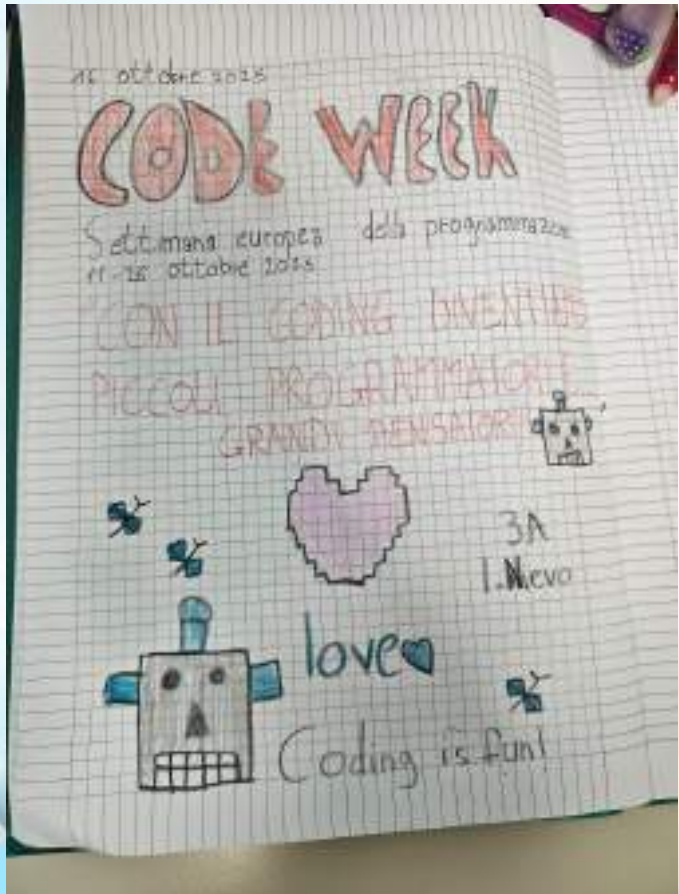 16 ottobre 2025
CODE WEEK
Settimana europea della programmazione
11-26 ottobre 2025
CON IL CODING DIVENTIAMO
PICCOLI PROGRAMMATORI E
GRANDI PENSATORI
3A
I. Nievo
love
Coding is fun!